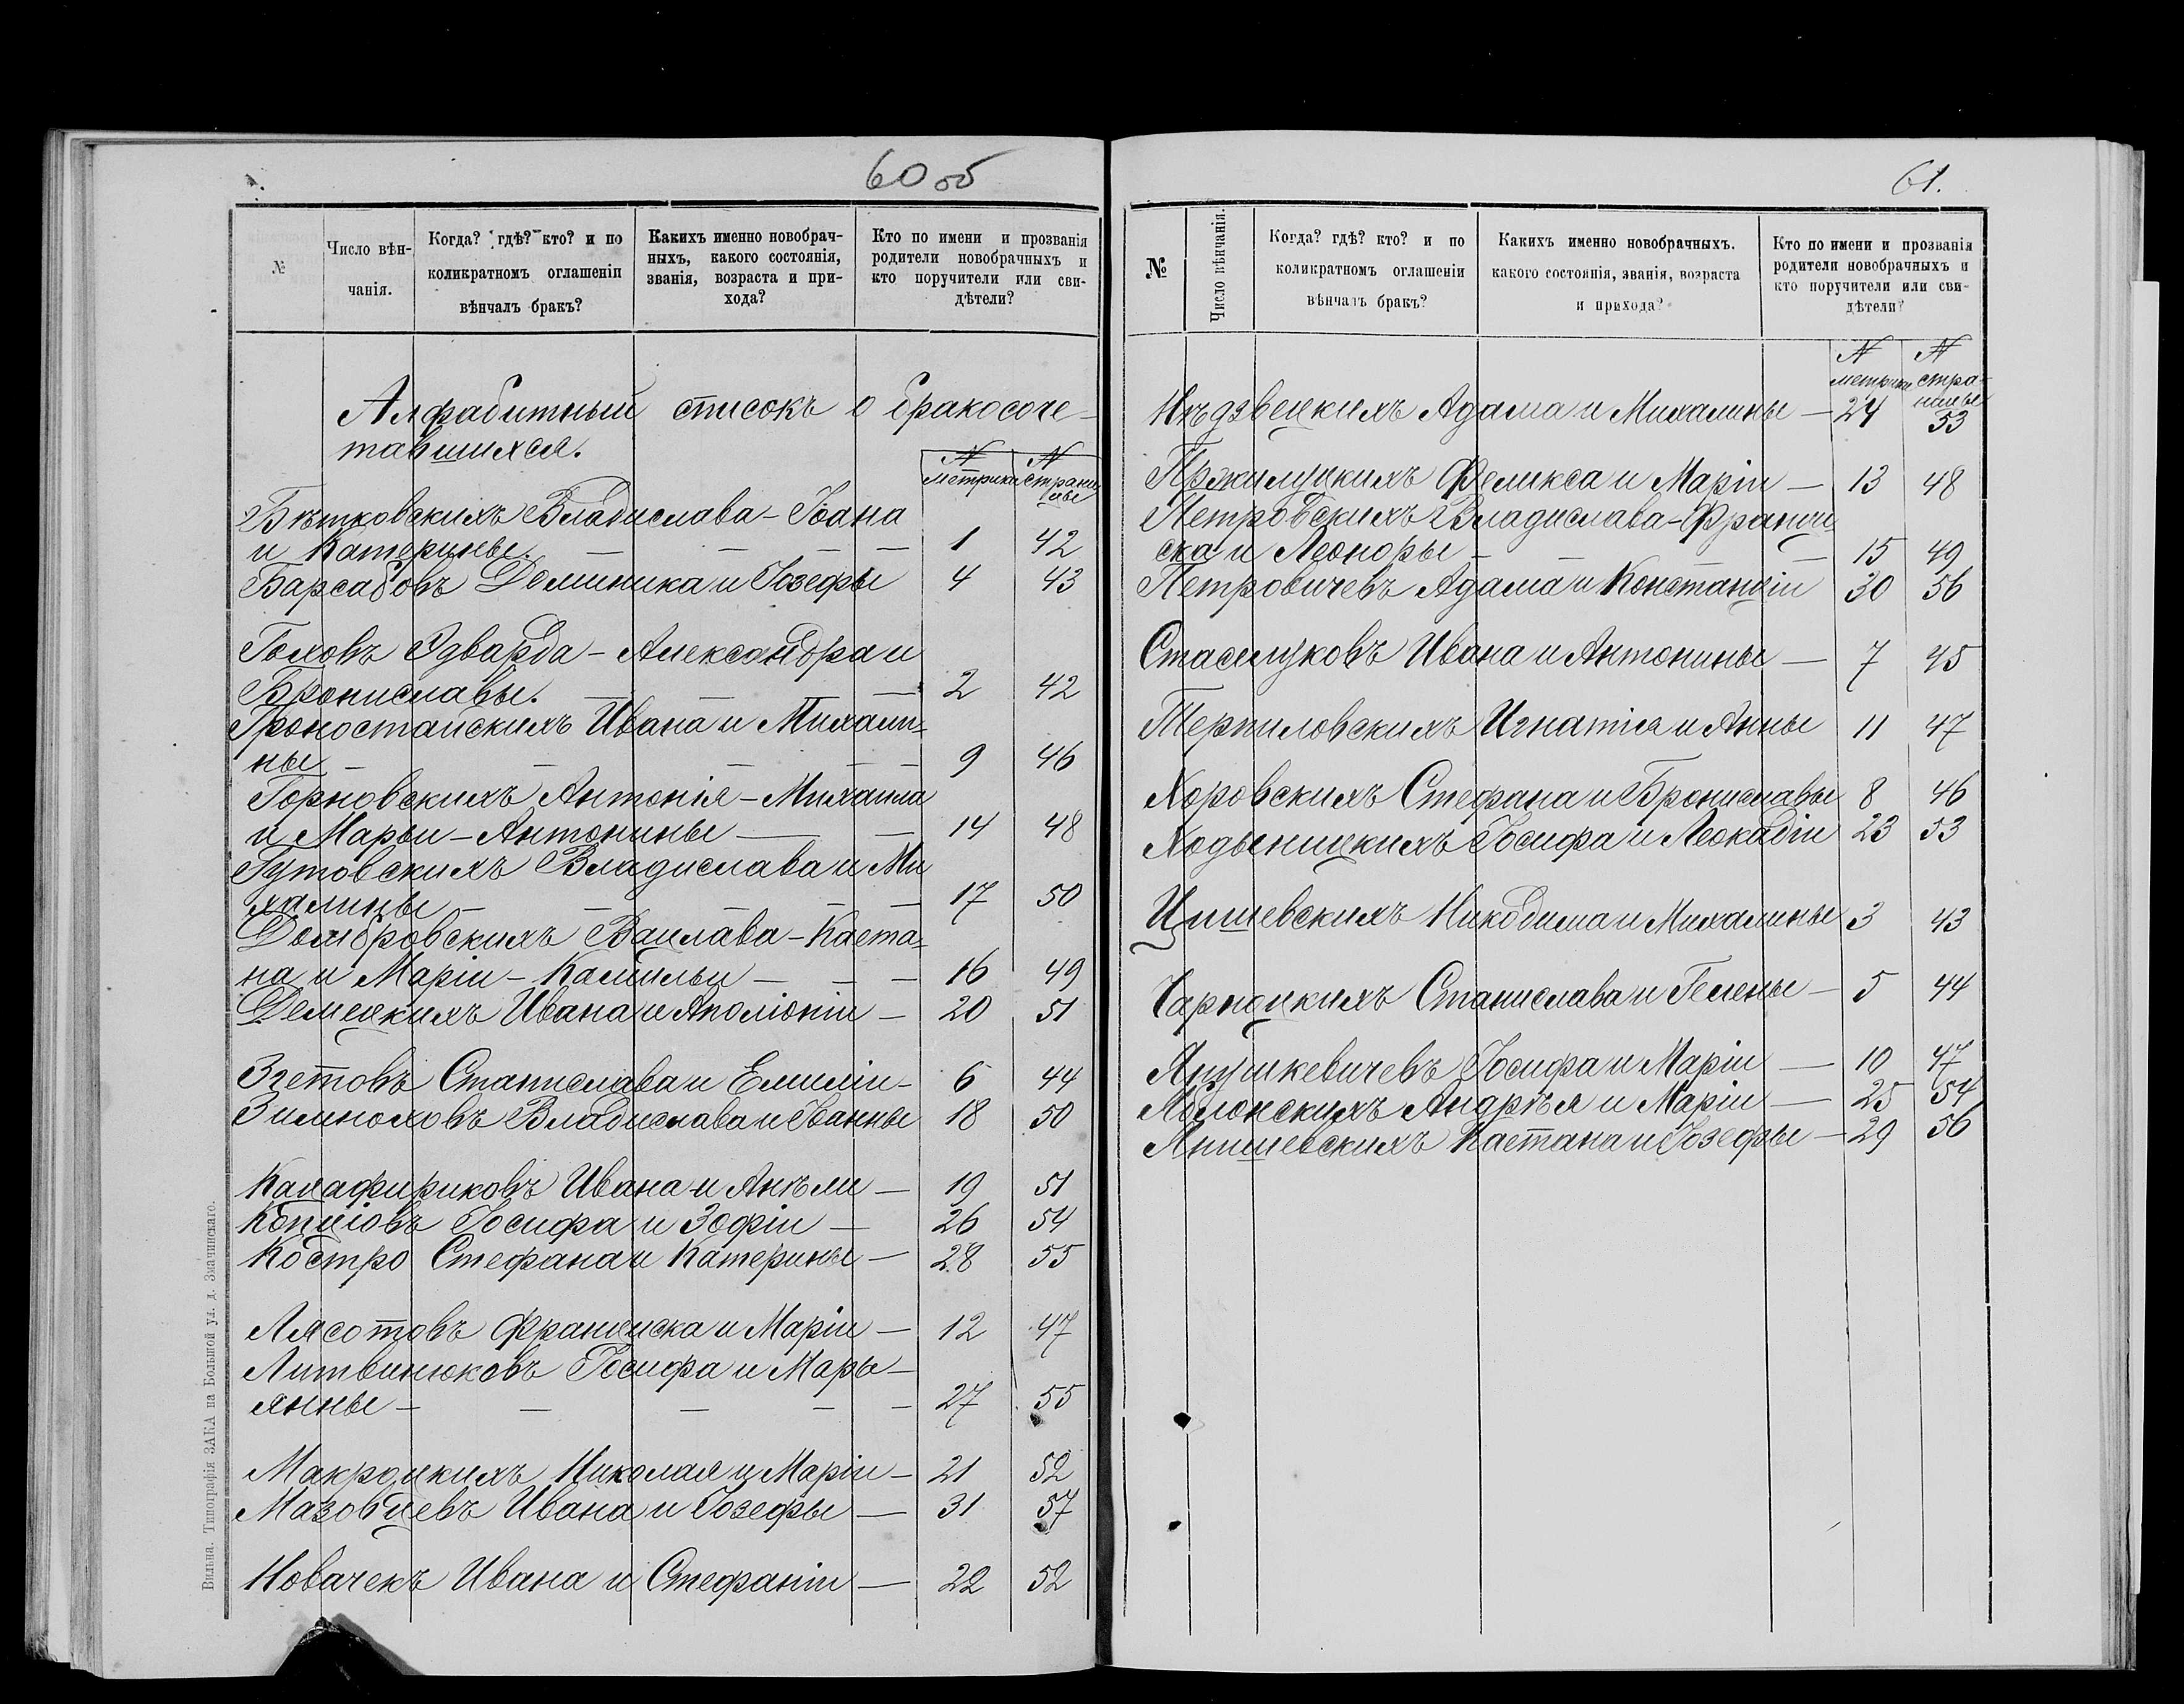 60 об
№
Число вѣн-
чанія.
Когда? гдѣ? кто? и по
коликратномъ оглашеніи
вѣнчалъ бракъ?
Какихъ именно новобрач-
ныхъ, какого состоянія,
званія, возраста и при-
хода?
Кто по имени и прозванія
родители новобрачныхъ и
кто поручители или сви-
дѣтели?
Алфабитный списокъ о бракосоче-
тавшихся.
N метрики N страницы
Бѣтковскихъ Владислава-Іоана
и Катерины. — — — — 1 42
Барсабовъ Доминика и Іозефы 4 43
Гоховъ Эдварда-Александра и
Брониславы. — — — 2 42
Гроностайскихъ Ивана и Михали-
ны — — — — — 9 46
Горновскихъ Антонія-Михаила
и Марьи-Антонины — — 14 48
Гутовскихъ Владислава и Ми
халины — — — — — 17 50
Домбровскихъ Вацлава-Каета-
на и Маріи-Камильи — — — 16 49
Демецкихъ Ивана и Аполіоніи — 20 51
Зѣетовъ Станислава и Емиліи — 6 44
Зимноховъ Владислава и Іванны 18 50
Калафириковъ Ивана и Анѣли — 19 51
Копціовъ Іосифа и Зофіи — 26 54
Костро Стефана и Катерины — 28 55
Лясотовъ Франциска и Маріи — 12 47
Литвинюковъ Іосифа и Марь-
янны — — — — — 27 55
Макрецкихъ Николая и Маріи — 21 52
Мазовцевъ Ивана и Іозефы — 31 57
Новачекъ Ивана и Стефаніи — 22 52
Вильна. Типографія ЗАКА на Большой ул. д. Значинскаго.
61.
№
Число вѣнчанія.
Когда? гдѣ? кто? и по
коликратномъ оглашеніи
вѣнчалъ бракъ?
Какихъ именно новобрачныхъ.
какого состоянія, званія, возраста
и прихода?
Кто по имени и прозванія
родители новобрачныхъ и
кто поручители или сви-
дѣтели?
N метрики N страницы
Нѣдзвецкихъ Адама и Михалины — 24 53
Пржилуцкихъ Феликса и Маріи — 13 48
Петровскихъ Владислава-Франци
ска и Леоноры — — — 15 49
Петровичевъ Адама и Констанціи 30 56
Стаселуковъ Ивана и Антонины — 7 45
Терпиловскихъ Игнатія и Анны 11 47
Хоровскихъ Стефана и Брониславы 8 46
Ходыницкихъ Іосифа и Леокадіи 23 53
Цишевскихъ Никодима и Михалины 3 43
Чарноцкихъ Станислава и Гелены — 5 44
Янушкевичевъ Іосифа и Маріи — 10 47
Яблонскихъ Андрѣя и Маріи — 25 54
Янишевскихъ Каетана и Іозефы — 29 56